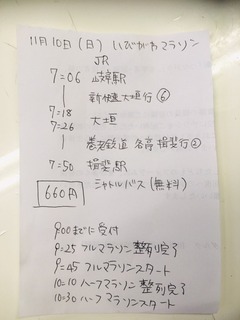 11月10日(日) いびがわマラソン
JR
7=06 岐阜駅
| 新快速 大垣行 ⑥
7=18
7=26 大垣
| 養老鉄道 各停 揖斐行 ②
7=50 揖斐駅
660円 シャトルバス (無料)
9:00までに受付
9=25 フルマラソン整列完了
9=45 フルマラソンスタート
10=10 ハーフマラソン 整列完了
10=30 ハーフマラソンスタート